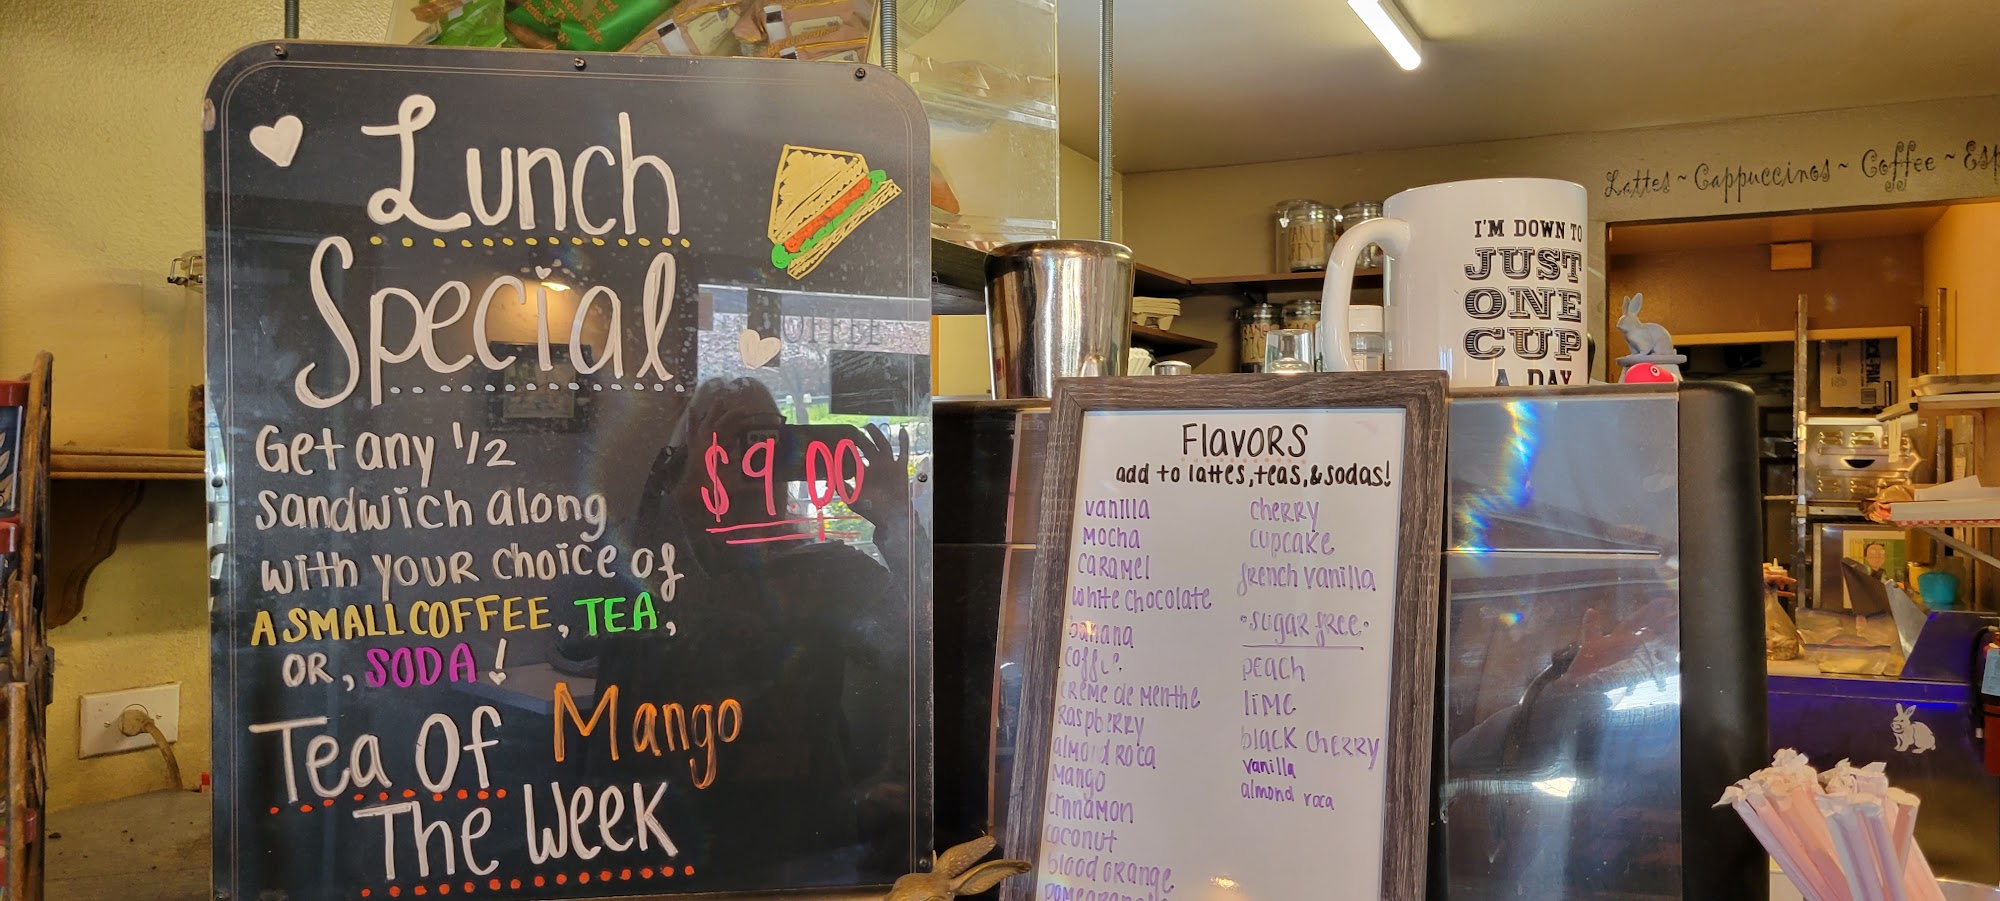 Lunch
Special
Get any 1/2
sandwich along
with your choice of
A SMALL COFFEE, TEA,
OR, SODA!
$9.00
Tea Of Mango
The Week
Flavors
add to lattes, teas, & sodas!
vanilla
mocha
caramel
white chocolate
banana
coffee
creme de menthe
raspberry
almond roca
mango
cinnamon
coconut
blood orange
pomegranate
cherry
cupcake
french vanilla
•sugar free•
peach
lime
black cherry
vanilla
almond roca
I'M DOWN TO
JUST
ONE
CUP
A DAY
Lattes ~ Cappuccinos ~ Coffee ~ Esp